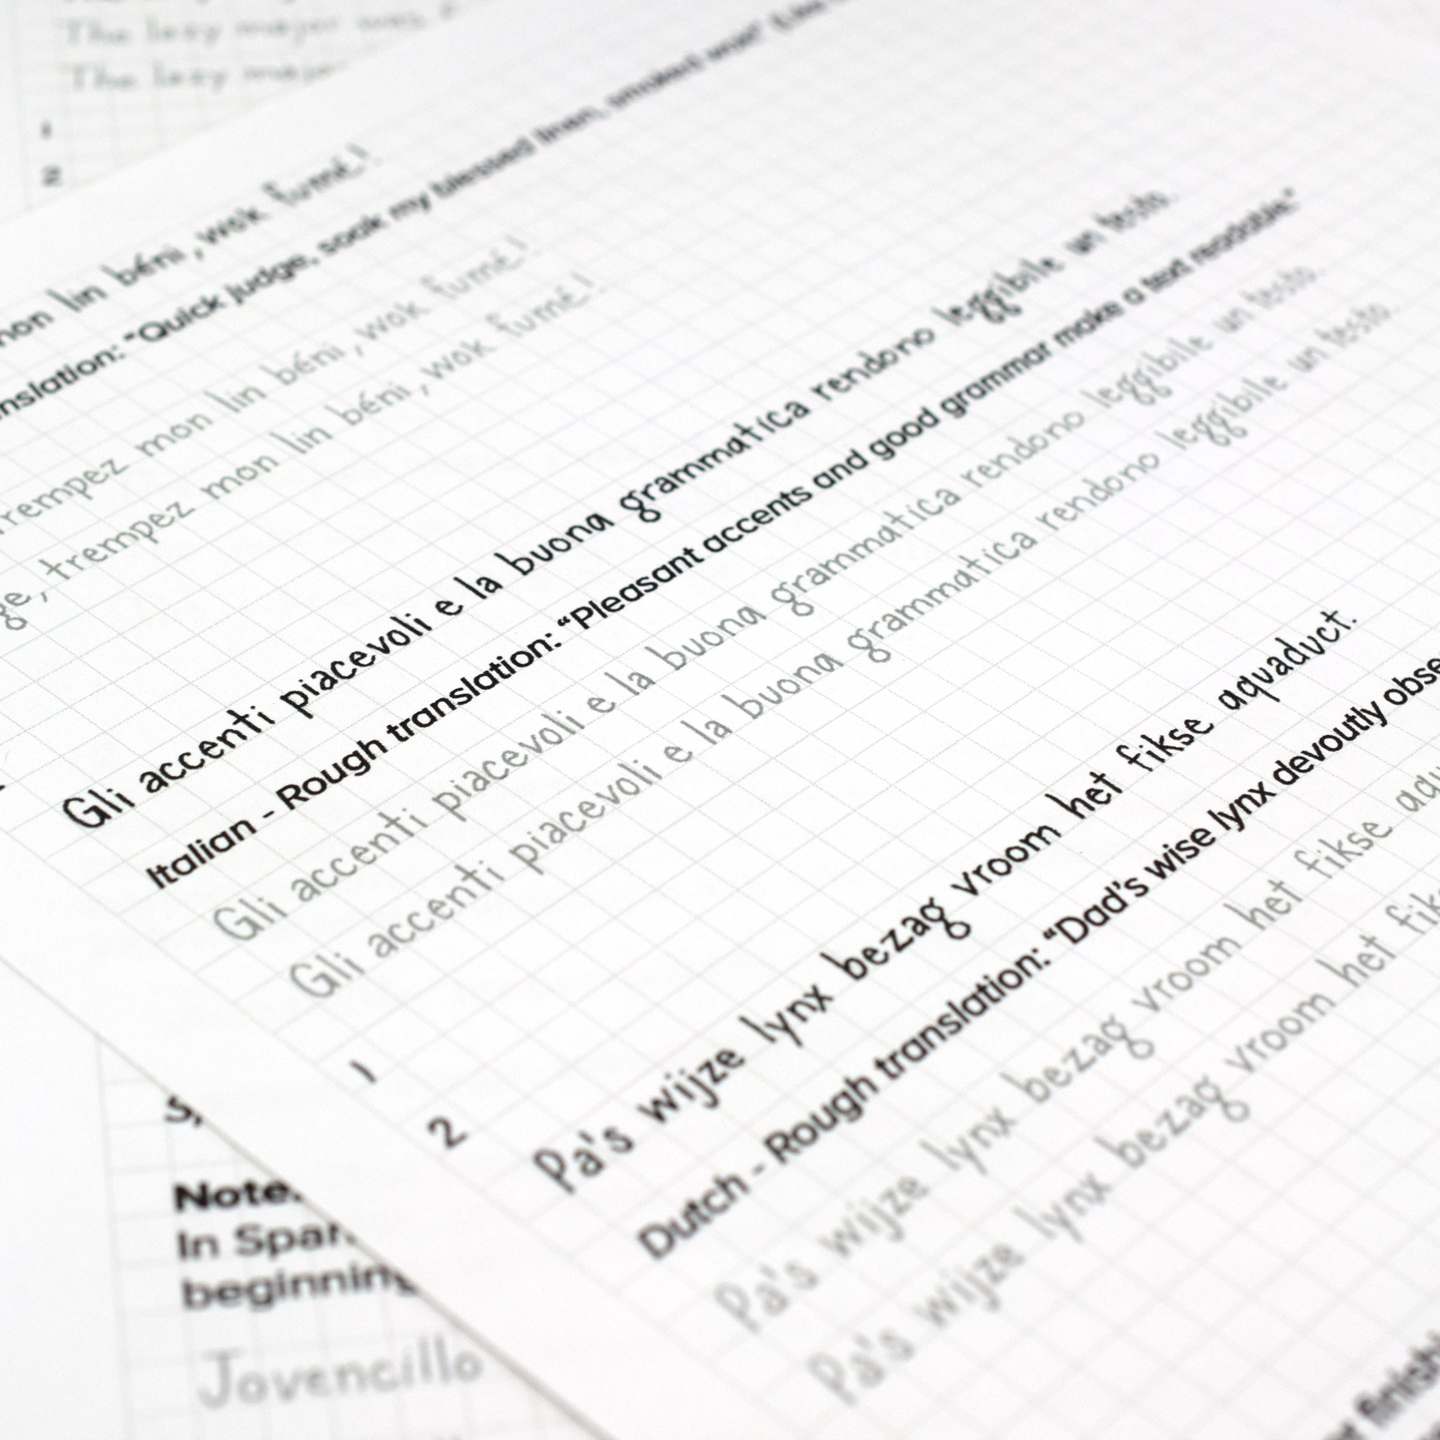 The lazy major was
The lazy major
1
2
mon lin béni, wok fumé!
nslation: “Quick judge, soak my blessed linen, smoked wok!”
trempez mon lin béni, wok fumé!
ge, trempez mon lin béni, wok fumé!
Gli accenti piacevoli e la buona grammatica rendono leggibile un testo.
Italian - Rough translation: “Pleasant accents and good grammar make a text readable.”
Gli accenti piacevoli e la buona grammatica rendono leggibile un testo.
Gli accenti piacevoli e la buona grammatica rendono leggibile un testo.
1
2
Pa's wijze lynx bezag vroom het fikse aquaduct.
Dutch - Rough translation: “Dad’s wise lynx devoutly obse
Pa's wijze lynx bezag vroom het fikse aqu
Pa's wijze lynx bezag vroom het fiks
finish
Note:
In Span
beginning
Jovencillo